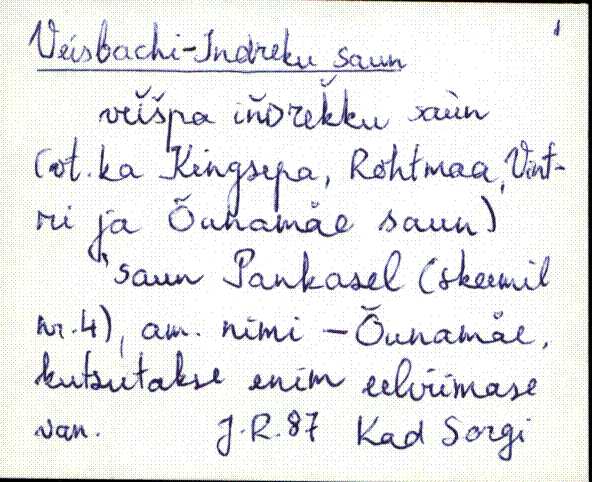 1
Veisbachi-Indreku saun
veišpa iǹdrek̆ku saùn
(vt. ka Kingsepa, Rohtmaa, Vint-
ri ja Õunamäe saun)
saun Pankasel (skeemil
nr. 4), am. nimi - Õunamäe,
kutsutakse enim eelviimase
van. J.R. 87 Kad Sorgi